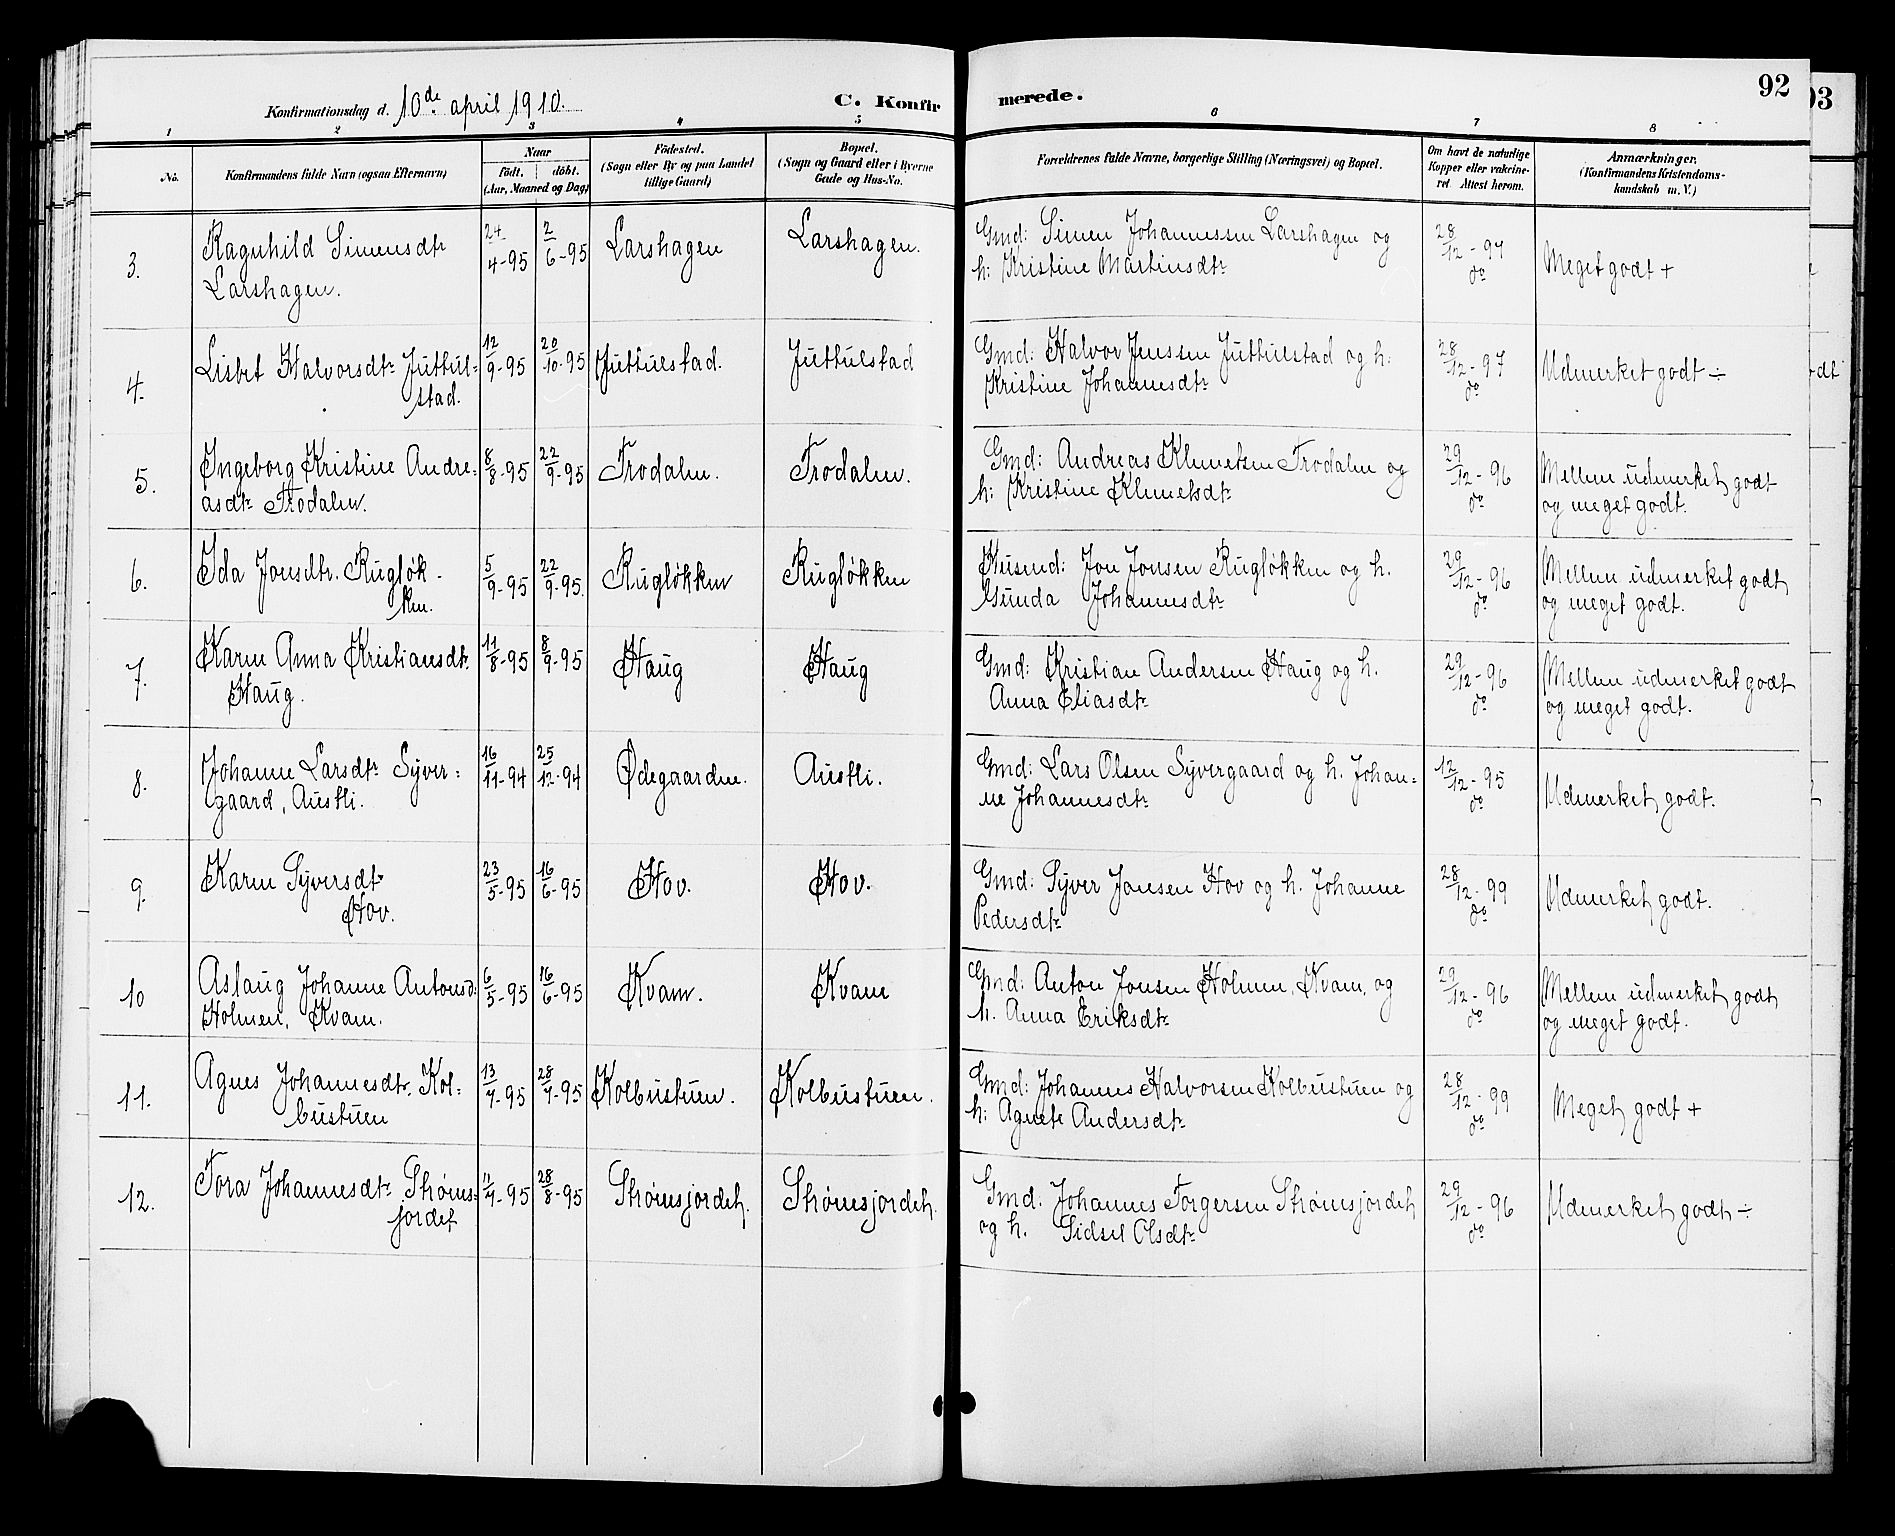 92
93
Konfirmationsdag d. 10de april 1910. C. Konfirmerede.
1 2 3 4 5 6 7 8
No.
Konfirmandens fulde Navn (ogsaa Efternavn)
Naar
födt. döbt.
(Aar, Maaned og Dag)
Födested.
(Sogn eller By og paa Landet
tillige Gaard)
Bopæl.
(Sogn og Gaard eller i Byerne
Gade og Hus-No.
Forældrenes fulde Navne, borgerlige Stilling (Næringsvei) og Bopæl.
Om havt de naturlige
Kopper eller vakcine-
ret. Attest herom.
Anmærkninger.
(Konfirmandens Kristendoms-
kundskab m. V.)
3. Ragnhild Simensdtr 24/4-95 2/6-95 Larshagen Larshagen. Gmd: Simen Johannessen Larshagen og 28/12-97 Meget godt +
Larshagen. h: Kristine Martinsdtr do
4. Lisbet Halvorsdtr Juttul= 12/9-95 20/10-95 Juttulstad. Juttulstad Gmd: Halvor Jenssen Juttulstad og h: 28/12-97 Udmerket godt ÷
stad. Kristine Johannesdtr do
5. Ingeborg Kristine Andre= 8/8-95 22/9-95 Frodalen. Frodalen. Gmd: Andreas Klemetsen Frodalen og 29/12-96 Mellem udmerket godt
asdtr Frodalen. h: Kristine Klemetsdtr do og meget godt.
6. Ida Jonsdtr. Rugløk- 5/9-95 22/9-95. Rugløkken Rugløkken Husmd: Jon Jonsen Rugløkken og h. 29/12-96 Mellem udmerket godt
ken. Gunda Johannesdtr do og meget godt.
7. Karen Anna Kristiansdtr. 11/8-95 8/9-95 Haug Haug Gmd: Kristian Andersen Haug og h. 29/12-96 Mellem udmerket godt
Haug. Anna Eliasdtr do og meget godt.
8. Johanne Larsdtr Syver= 16/11-94 25/12-94 Ødegaarden. Austli. Gmd: Lars Olsen Syvergaard og h. Johan= 12/12-95 Udmerket godt.
gaard, Austli. ne Johannesdtr do
9. Karen Syversdtr 23/5-95 16/6-95 Hov. Hov. Gmd: Syver Jonsen Hov og h. Johanne 28/12-99 Udmerket godt.
Hov. Pedersdtr do
10 Aslaug Johanne Antonsd: 6/5-95 16/6-95 Kvam. Kvam Gmd: Anton Jonsen Holmen, Kvam, og 29/12-96 Mellem udmerket godt
Holmen, Kvam. h. Anna Eriksdtr do og meget godt.
11. Agnes Johannesdtr. Kol= 13/7-95 28/7-95 Kolbustuen. Kolbustuen. Gmd: Johannes Halvorsen Kolbustuen og 28/12-99 Meget godt +
bustuen h: Agnete Andersdtr do
12. Tora Johannesdtr Strøms= 11/7-95 28/8-95 Strømsjordet. Strømsjordet. Gmd: Johannes Torgersen Strømsjordet 29/12-96 Udmerket godt ÷
jordet og h. Sidsel Olsdtr do